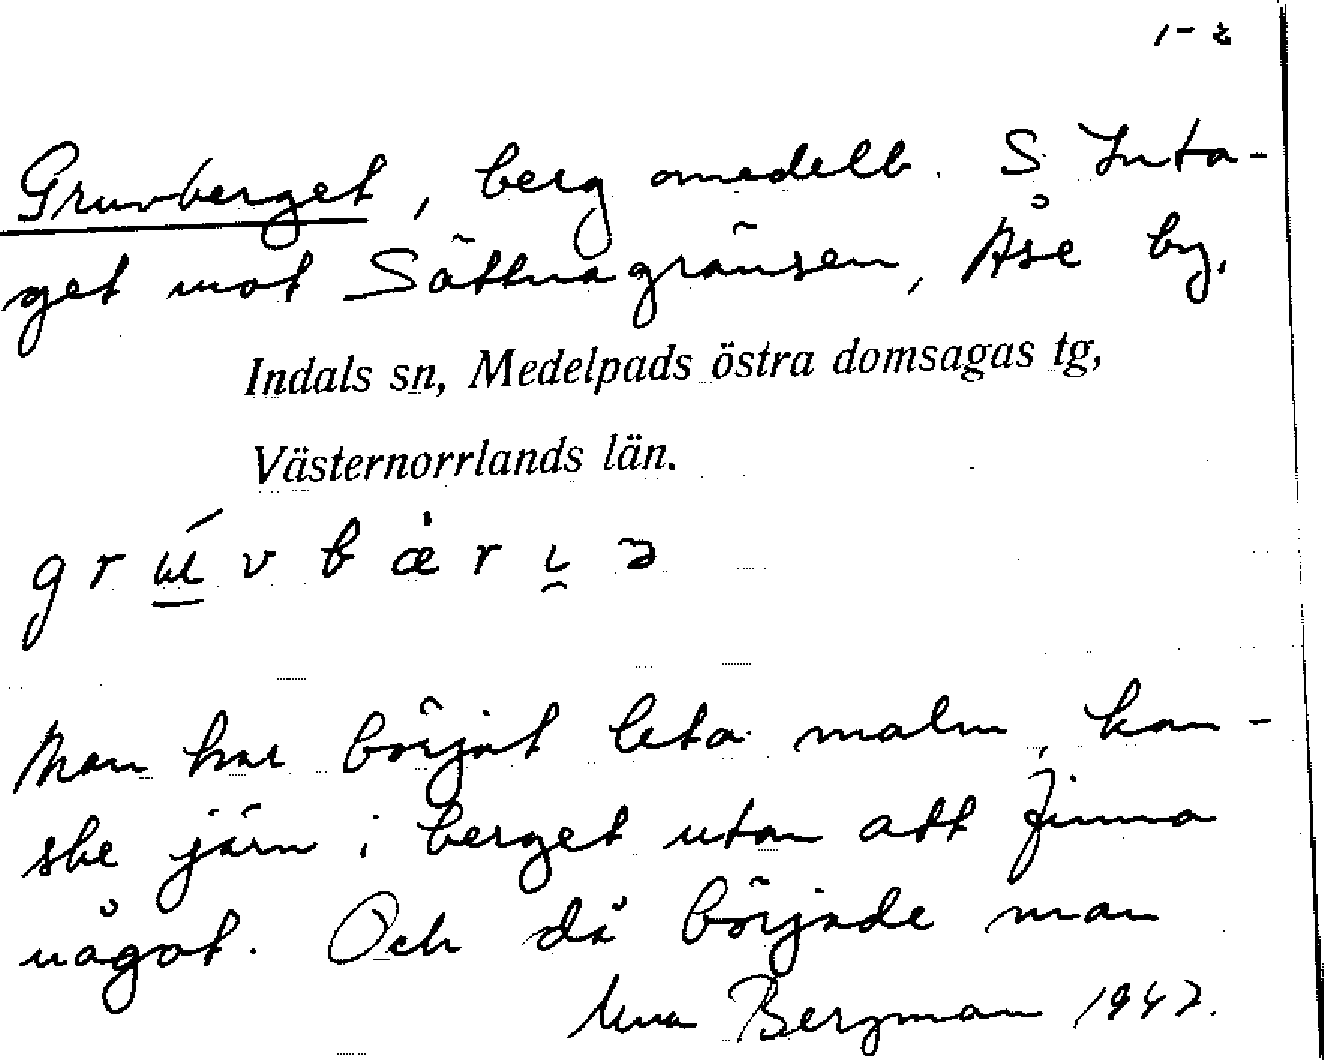 1-2
Gruvberget, berg omedelb. S Inta-
get mot Sättnagränsen, Åse by.
Indals sn, Medelpads östra domsagas tg,
Västernorrlands län.
Man har börjat leta malm, kan-
ske järn i berget utan att finna
något. Och då började man
Bergman 1947.